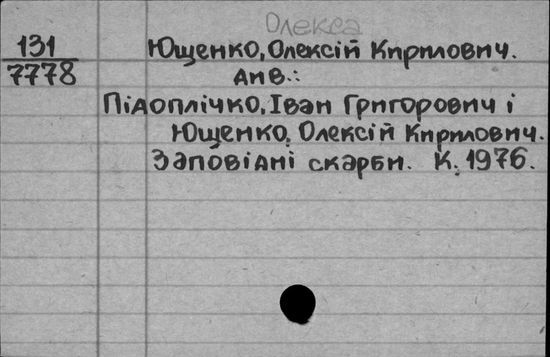 Олекса
131
7778
Ющенко, Олексій Кирилович.
див.:
Підоплічко, Іван Григорович і
Ющенко, Олексій Кирилович.
Заповідні скарби. К. 1976.